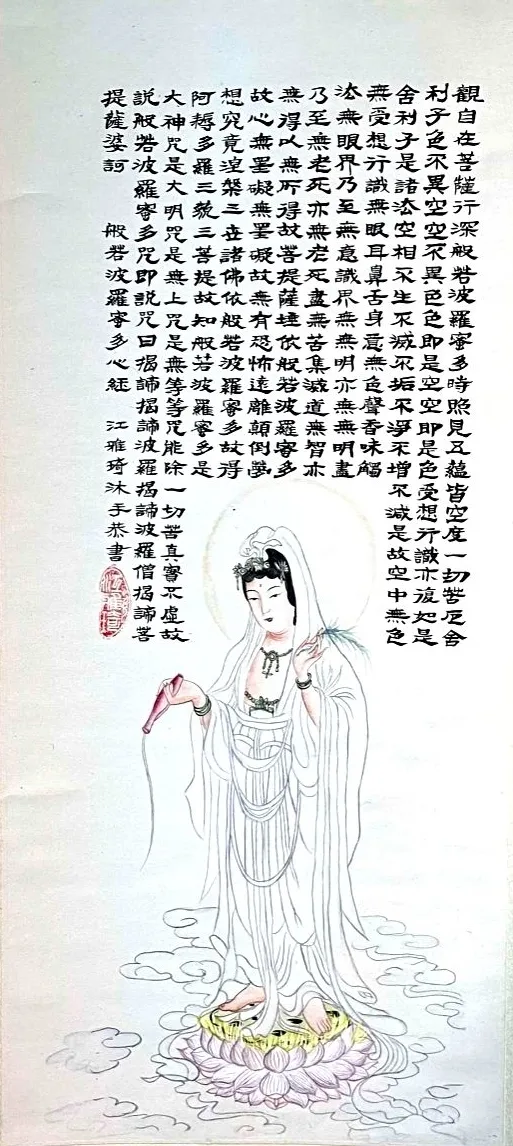 觀自在菩薩行深般若波羅蜜多時照見五蘊皆空度一切苦厄舍
利子色不異空空不異色色即是空空即是色受想行識亦復如是
舍利子是諸法空相不生不滅不垢不淨不增不減是故空中無色
無受想行識無眼耳鼻舌身意無色聲香味觸
法無眼界乃至無意識界無無明亦無無明盡
乃至無老死亦無老死盡無苦集滅道無智亦
無得以無所得故菩提薩埵依般若波羅蜜多
故心無罣礙無罣礙故無有恐怖遠離顛倒夢
想究竟涅槃三世諸佛依般若波羅蜜多故得
阿耨多羅三藐三菩提故知般若波羅蜜多是
大神咒是大明咒是無上咒是無等等咒能除一切苦真實不虛故
說般若波羅蜜多咒即說咒曰揭諦揭諦波羅揭諦波羅僧揭諦菩
提薩婆訶 般若波羅蜜多心經 江雅琦沐手恭書